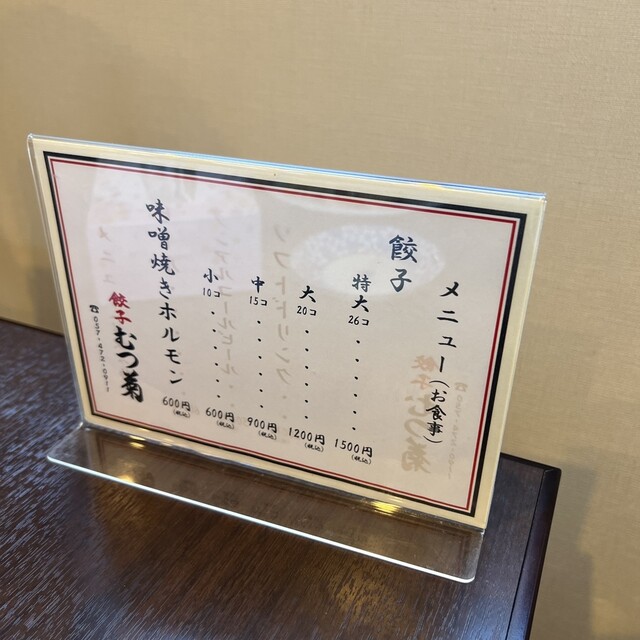 メニュー(お食事)
餃子
特大 26コ・・・・・1500円(税込)
大 20コ・・・・・・1200円(税込)
中 15コ・・・・・・900円(税込)
小 10コ・・・・・・600円(税込)
味噌焼きホルモン 600円(税込)
餃子 むつ菊
☎057-472-0977